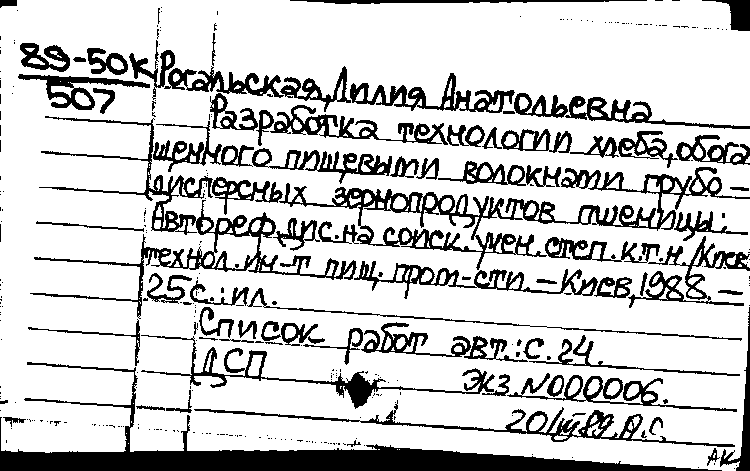 89-50К
507
Рогальская, Лилия Анатольевна
Разработка технологии хлеба, обога
щенного пищевыми волокнами грубо-
дисперсных зернопродуктов пшеницы:
Автореф. дис. на соиск. учен. степ. к.т.н. / Киев.
технол. ин-т пищ. пром-сти. - Киев, 1988. -
25с.: ил.
Список работ авт.: с. 24.
ДСП
Экз. N000006.
20/III 89. А.С.
АК